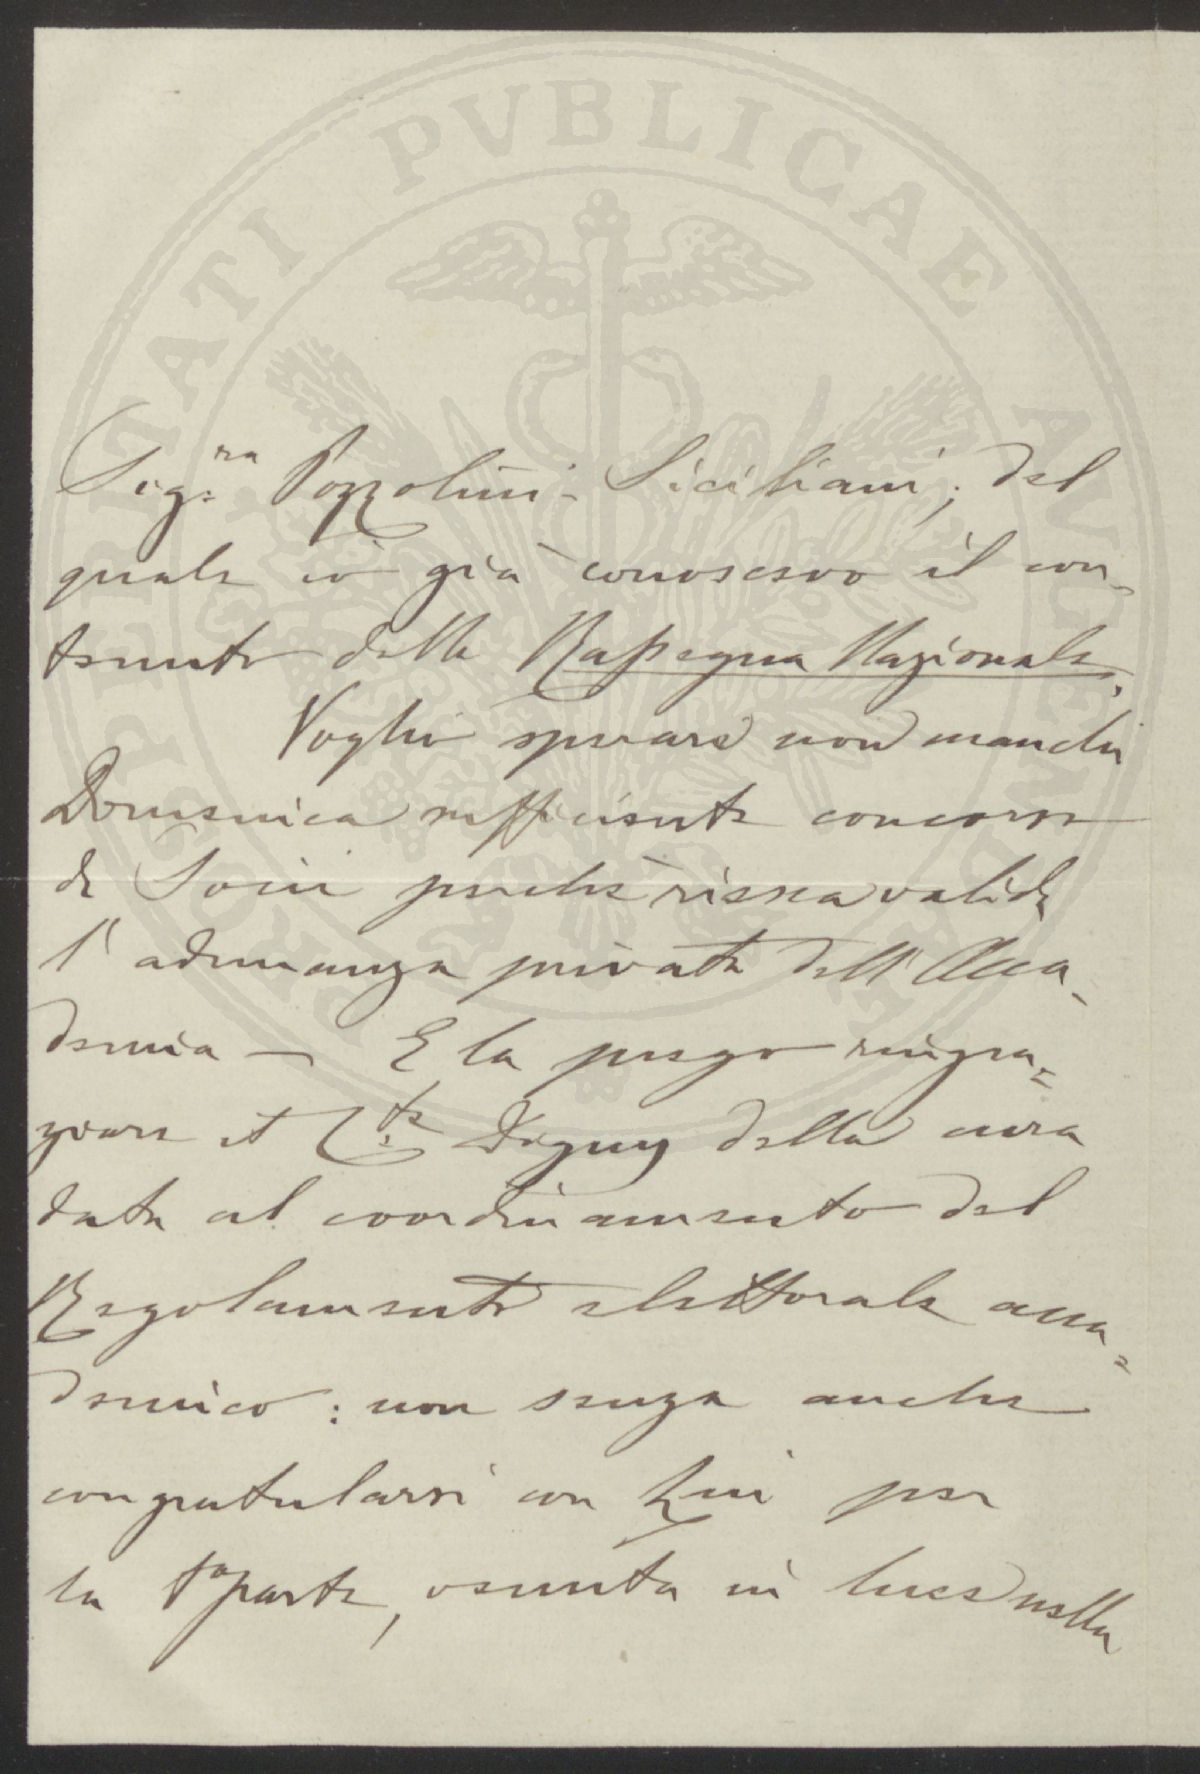 PROSPERITATI PVBLICAE AVGENDAE
Sig.ra Pozzolini-Siciliani; del
quale io già conoscevo il con-
tenuto dalla Rassegna Nazionale.
Voglio sperare non manchi
Domenica sufficiente concorso
di Socii perchè riesca valida
l'adunanza privata dell'Acca-
demia — E la prego ringra=
ziare il C.te Digny della cura
data al coordinamento del
Regolamento elettorale acca=
demico: non senza anche
congratularsi con Lui per
la 1a parte, venuta in luce nella